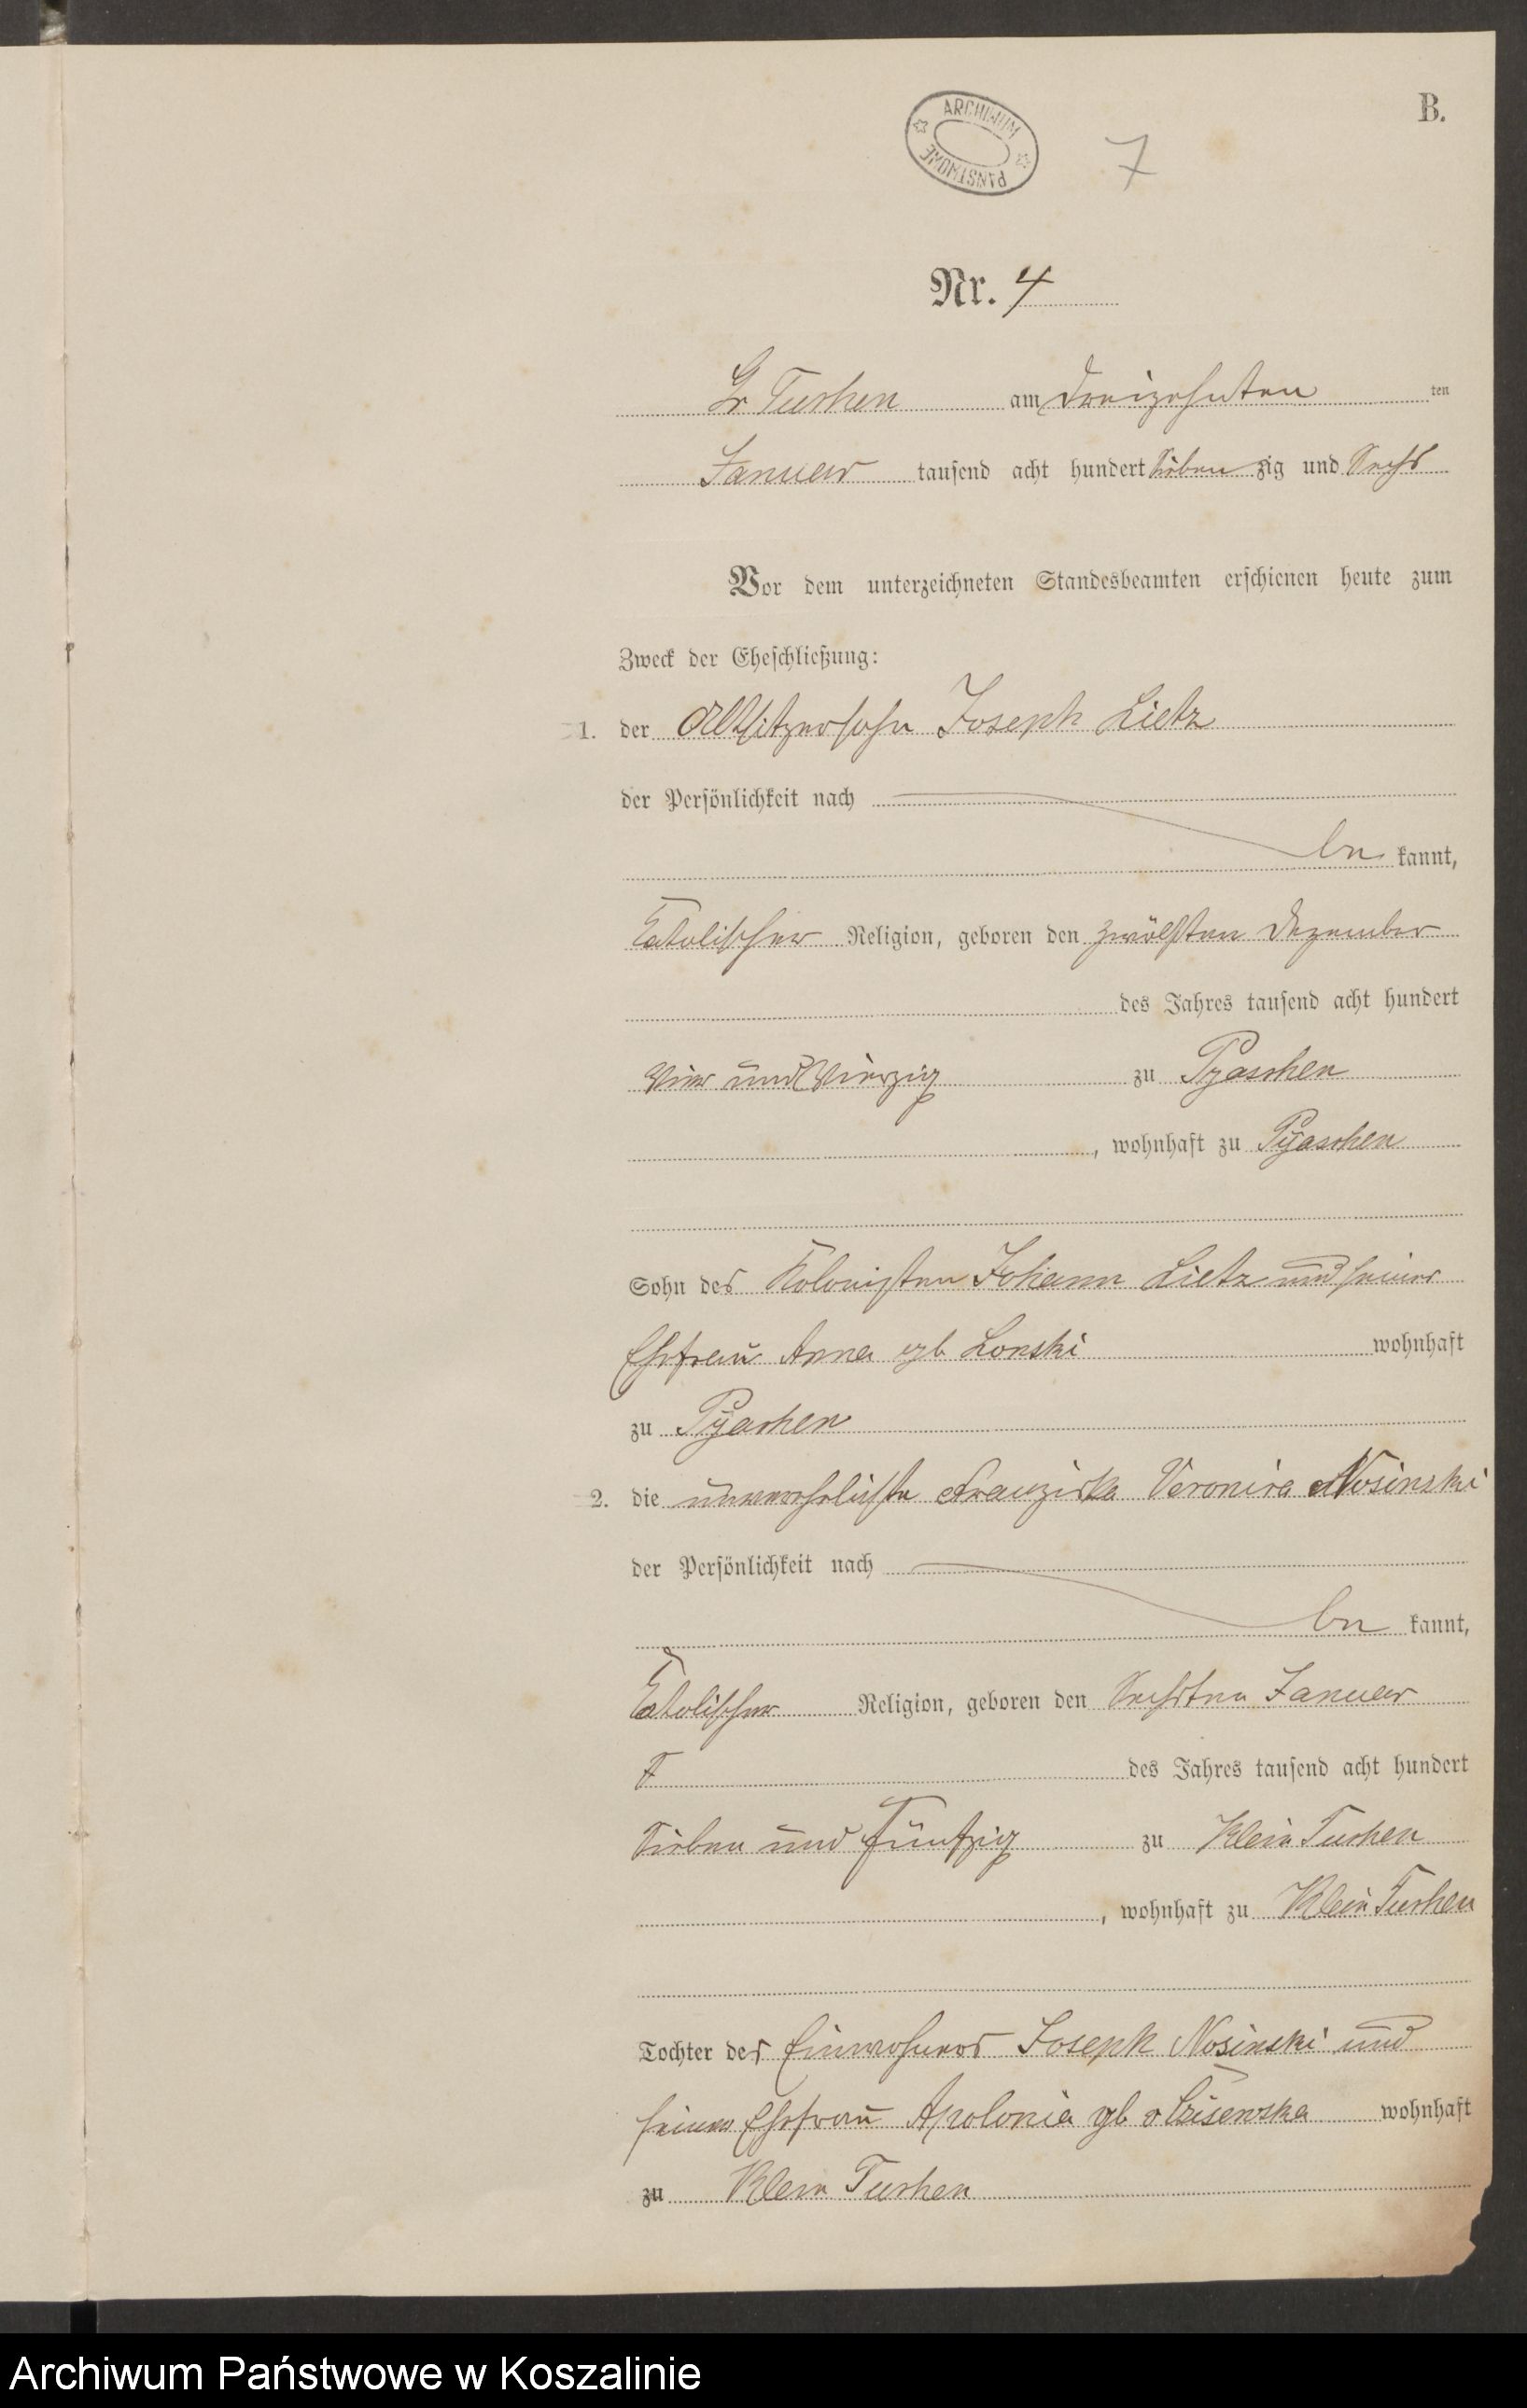 B.
ARCHIWUM PAŃSTWOWE
7
Nr. 4
Gr Tuchen am dreizehnten ten
Januar tausend acht hundert Sieben zig und Sechs
Vor dem unterzeichneten Standesbeamten erschienen heute zum
Zweck der Eheschließung:
1. der Altsitzersohn Joseph Lietz
der Persönlichkeit nach
be kannt,
katolischer Religion, geboren den zwölften Dezember
des Jahres tausend acht hundert
vier und Vierzig zu Pyaschen
, wohnhaft zu Pyaschen
Sohn des Kolonisten Johann Lietz und seiner
Ehefrau Anna geb Lonski wohnhaft
zu Pyaschen
2. die unverehelichte Franziska Veronica Nosinski
der Persönlichkeit nach
be kannt,
katolischer Religion, geboren den Sechsten Januar
des Jahres tausend acht hundert
Sieben und Fünfzig zu Klein Tuchen
, wohnhaft zu Klein Tuchen
Tochter des Einwohners Joseph Nosinski und
seiner Ehefrau Apolonia geb v wohnhaft
zu Klein Tuchen
Archiwum Państwowe w Koszalinie